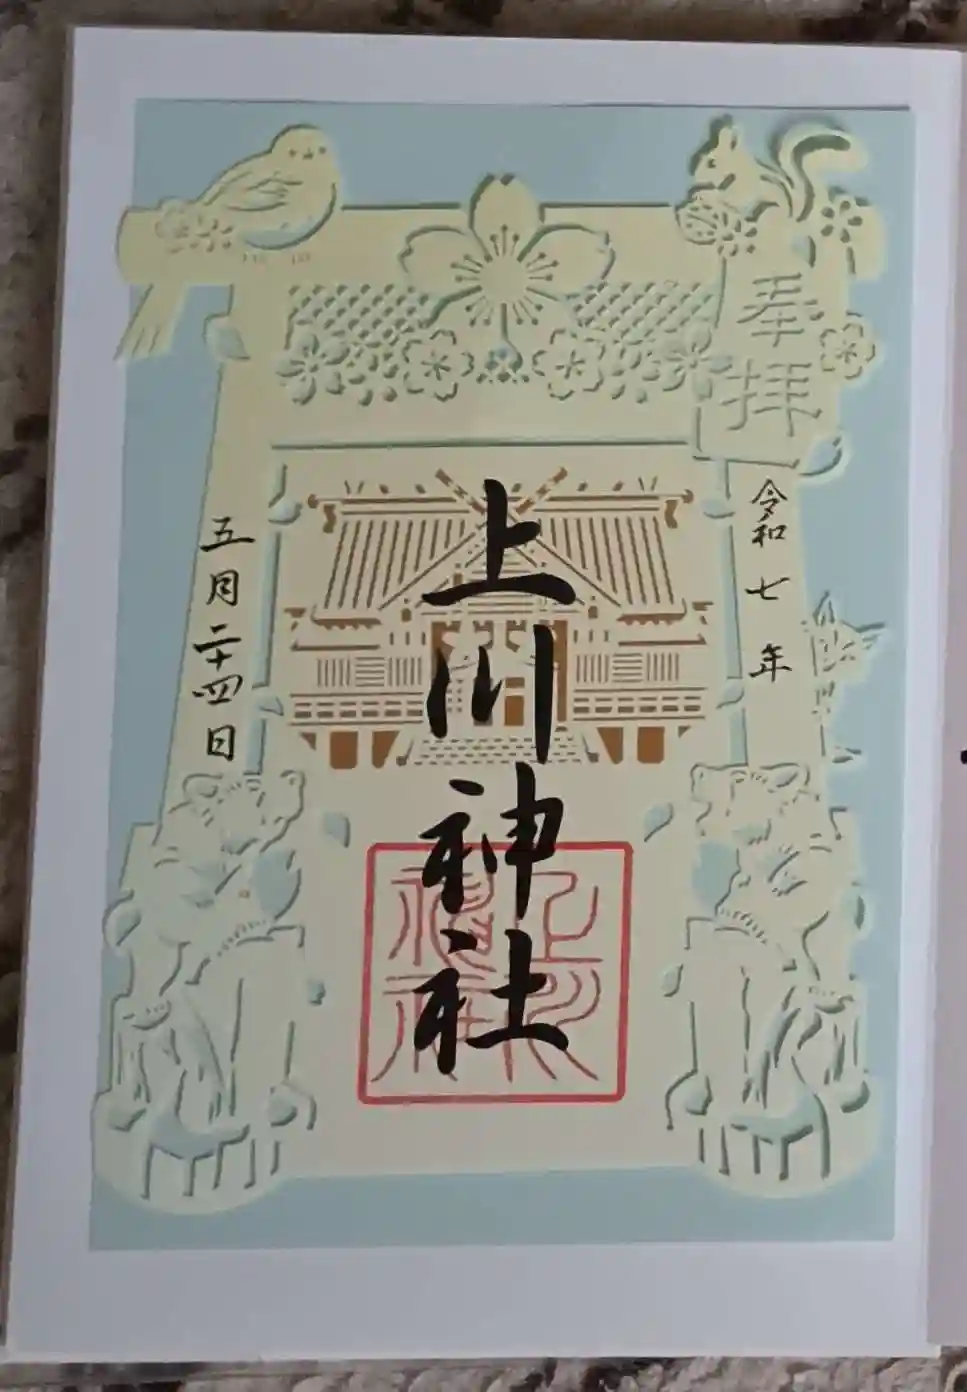 奉拝
令和七年
上川神社
上川神社
五月二十四日